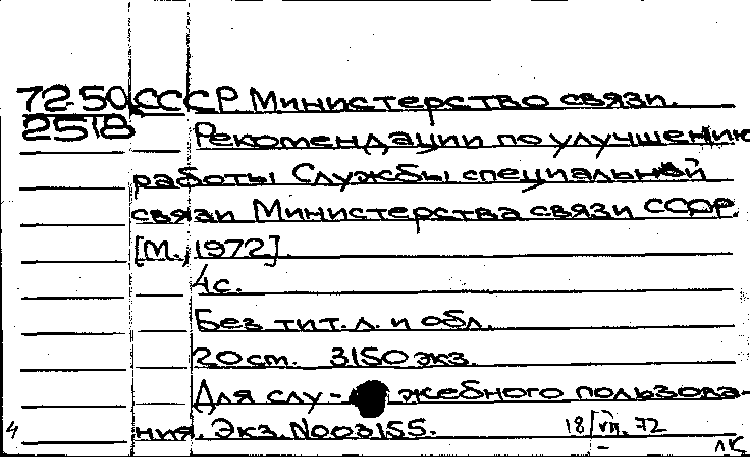 72-50 СССР Министерство связи.
2518 Рекомендации по улучшению
работы Службы специальной
связи Министерства связи СССР.
[М., 1972].
4с.
Без тит. л. и обл.
20 см. 3150 экз.
Для слу- жебного пользова-
ния. Экз. №003155. 18/VII. 72
4 ЛК